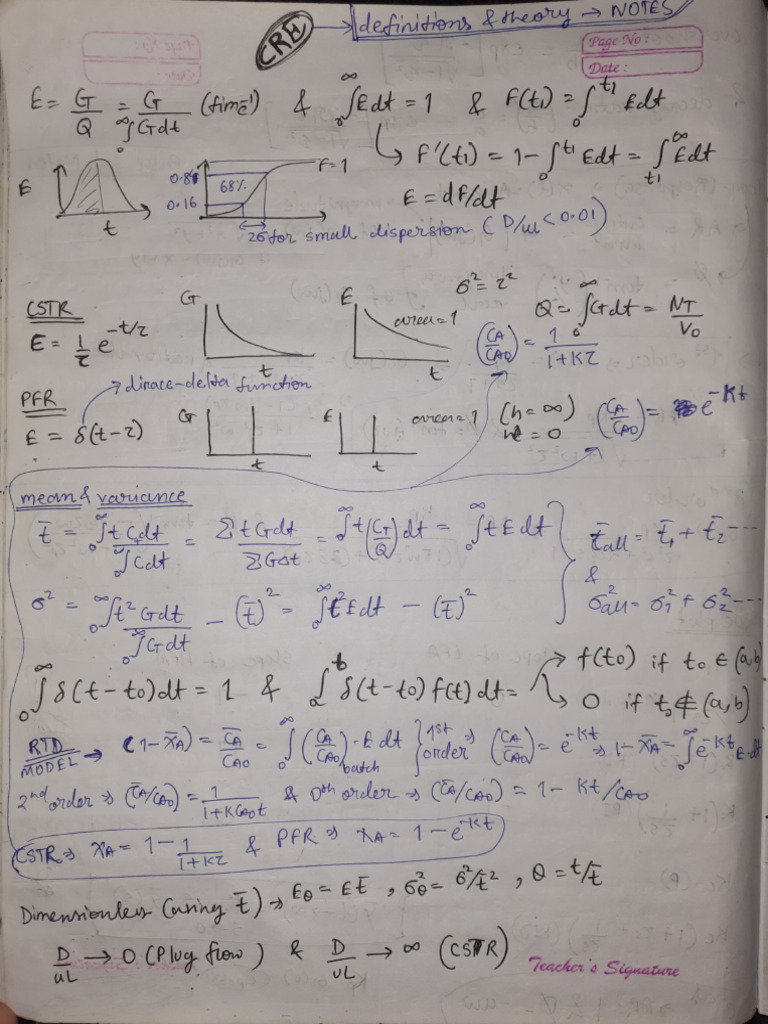 CRE → definitions & theory → NOTES
Page No:
Date:
E = G/Q = G/₀∫^∞ G dt (time⁻¹) & ₀∫^∞ E dt = 1 & F(t₁) = ₀∫^t₁ E dt
↳ F'(t₁) = 1 - ₀∫^t₁ E dt = t₁∫^∞ E dt
E = dF/dt
E t
0.84 0.16 68% F=1
2σ for small dispersion (D/uL < 0.01)
CSTR
E = 1/τ e^(-t/τ)
G t
E area = 1 t
σ² = τ²
Q = ₀∫^∞ G dt = NT/V₀
(CA/CA0) = 1/(1+Kτ)
PFR → dirace-delta function
E = δ(t-τ)
G t
E t area = 1 (h = ∞)
= 0
(CA/CA0) = e^(-Kt)
mean & variance
t̄ = ₀∫^∞ t C dt / ₀∫^∞ C dt = Σ t G dt / Σ G Δt = ₀∫^∞ t (G/Q) dt = ₀∫^∞ t E dt
t̄all = t̄₁ + t̄₂ ---
&
σ²all = σ₁² + σ₂² ---
σ² = ₀∫^∞ t² G dt / ₀∫^∞ G dt - (t̄)² = ₀∫^∞ t² E dt - (t̄)²
₀∫^∞ δ(t-t₀) dt = 1 & a∫^b δ(t-t₀) f(t) dt = → f(t₀) if t₀ ∈ (a,b)
→ 0 if t₀ ∉ (a,b)
RTD MODEL → (1-X̄A) = C̄A/CA0 = ₀∫^∞ (CA/CA0)batch · E dt } 1st order ⇒ (CA/CA0) = e^(-Kt) ⇒ 1-X̄A = ₀∫^∞ e^(-Kt) E·dt
2nd order ⇒ (C̄A/CA0) = 1/(1+KCA0t) & 0th order ⇒ (C̄A/CA0) = 1 - Kt/CA0
CSTR ⇒ XA = 1 - 1/(1+Kτ) & PFR ⇒ XA = 1 - e^(-Kt)
Dimensionless (using t̄) ⇒ Eθ = E t̄ , σθ² = σ²/t̄² , θ = t/t̄
D/uL → 0 (Plug flow) & D/uL → ∞ (CSTR)
Teacher's Signature